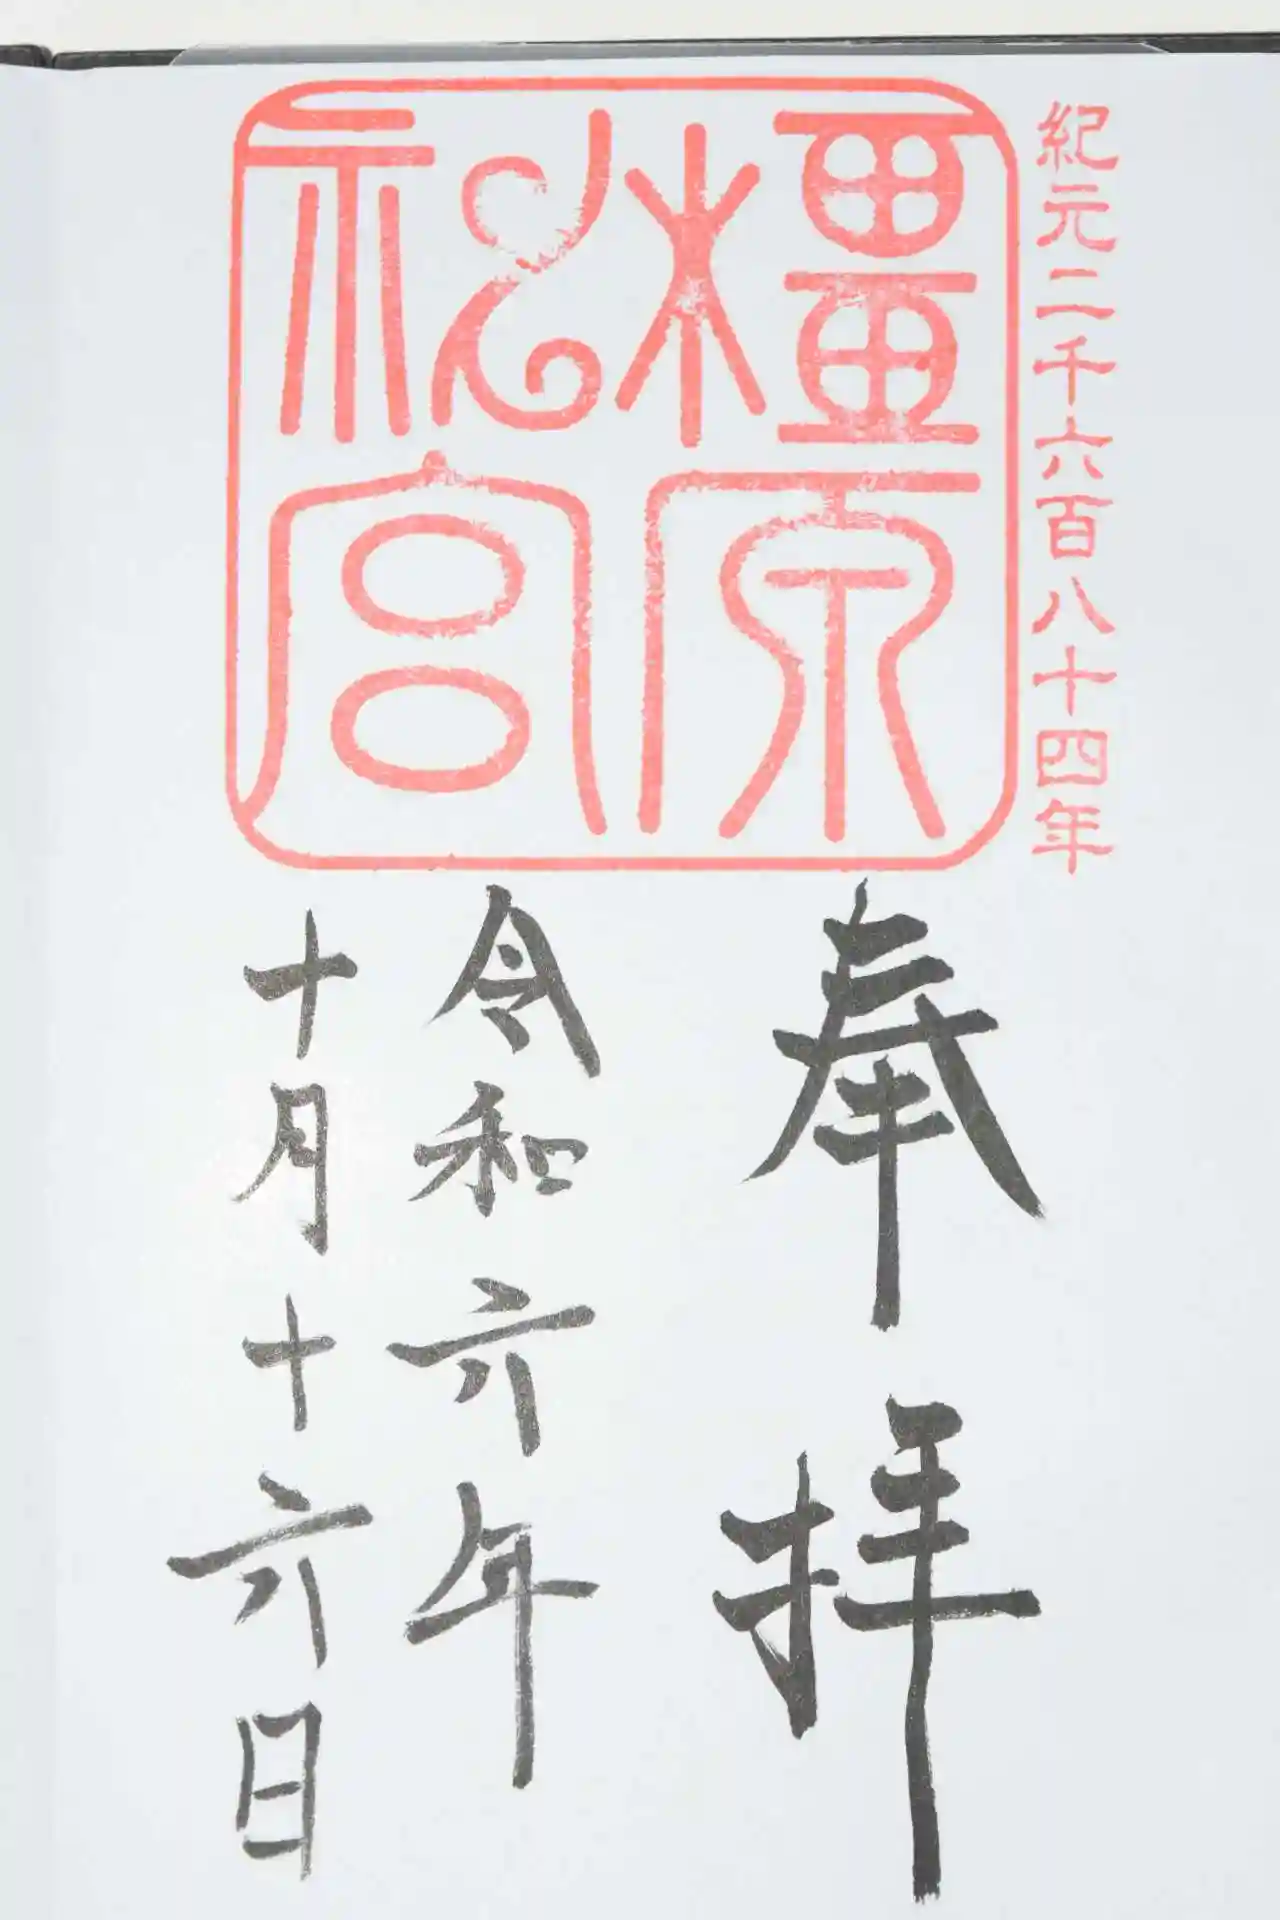 紀元二千六百八十四年
橿原
神宮
奉拝
令和六年
十月十六日